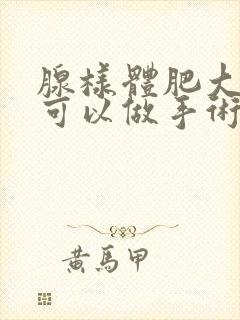 腺樣體肥大
可以做手術
黃馬甲